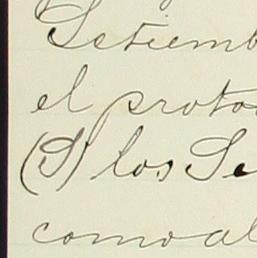 Setiemb
el proto
(S) los Se
como al